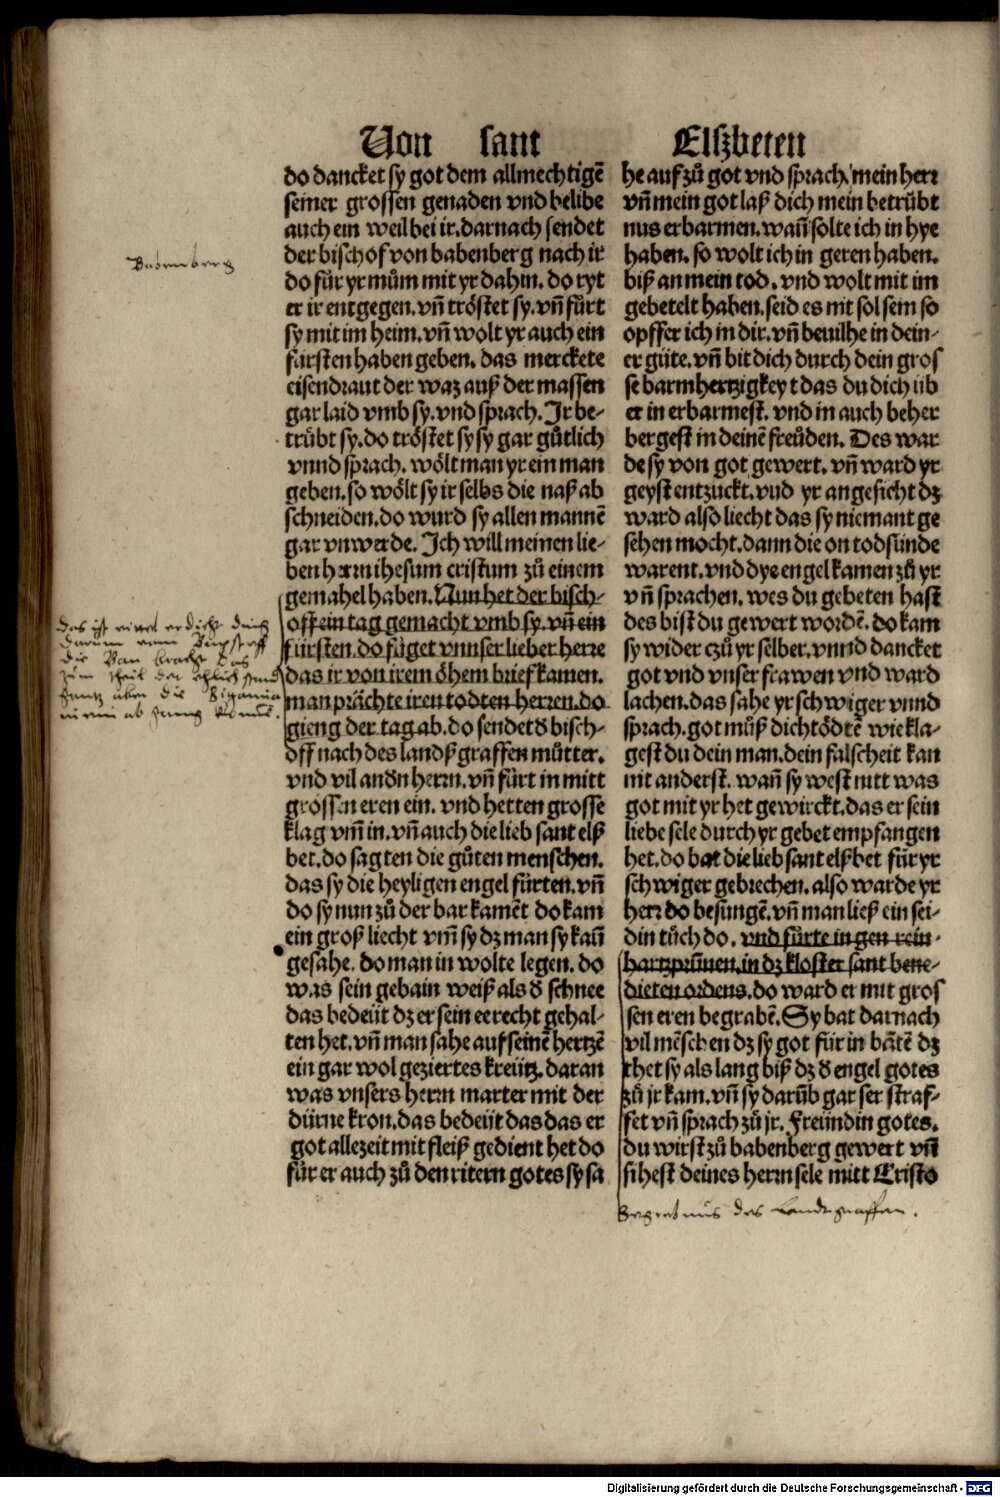 Von sant Elszbeten
do dancket sy got dem allmechtigē
seiner grossen genaden vnd belibe
auch ein weil bei ir. darnach sendet
der bischof von babenberg nach ir
do für yr mům mit yr dahin. do ryt
er ir entgegen. vñ tröstet sy. vñ fürt
sy mit im heim. vñ wolt yr auch ein
fürsten haben geben. das merckete
eisendraut der waz auß der massen
gar laid vmb sy. vnd sprach. Ir be-
trübt sy. do tröstet sy sy gar gůtlich
vnnd sprach. wölt man yr ein man
geben. so wölt sy ir selbs die naß ab
schneiden. do wurd sy allen mannē
gar vnwerde. Ich will meinen lie-
ben herrn ihesum cristum zů einem
gemahel haben. Nun het der bisch-
off ein tag gemacht vmb sy. vñ ein
fürsten. do füget vnnser lieber herre
das ir von irem öhem brief kamen.
man prächte iren todten herren. do
gieng der tag ab. do sendet d bisch-
off nach des landß graffen můtter.
vnd vil andn herrn. vñ fürt in mitt
grossen eren ein. vnd hetten grosse
klag vm̄ in. vñ auch die lieb sant elß
bet. do sagten die gůten menschen.
das sy die heyligen engel fürten. vñ
do sy nun zů der bar kamēt do kam
ein groß liecht vm̄ sy dz man sy kaū
gesahe. do man in wolte legen. do
was sein gebain weiß als d schnee
das bedeüt dz er sein ee recht gehal-
ten het. vñ man sahe auf seinē hertzē
ein gar wol geziertes kreütz. daran
was vnsers herrn marter mit der
dürne kron. das bedeüt das das er
got allezeit mit fleiß gedient het do
für er auch zů den ritern gotes sy sa
he auf zů got vnd sprach. mein herr
vñ mein got laß dich mein betrübt
nus erbarmen. wañ solte ich in hye
haben. so wolt ich in geren haben.
biß an mein tod. vnd wolt mit im
gebetelt haben. seid es nit sol sein so
opffer ich in dir. vñ beuilhe in dein-
er güte. vñ bit dich durch dein gros
se barmhertzigkeyt das du dich üb
er in erbarmest. vnd in auch beher
bergest in deinē freüden. Des war
de sy von got gewert. vñ ward yr
geyst entzuckt. vnd yr angesicht dz
ward also liecht das sy niemant ge
sehen mocht. dann die on todsünde
warent. vnd dye engel kamen zů yr
vñ sprachen. wes du gebeten hast
des bist du gewert wordē. do kam
sy wider czů yr selber. vnnd dancket
got vnd vnser frawen vnd ward
lachen. das sahe yr schwiger vnnd
sprach. got můß dich tödtē wie kla-
gest du dein man. dein falscheit kan
nit anderst. wañ sy west nitt was
got mit yr het gewirckt. das er sein
liebe sele durch yr gebet empfangen
het. do bat die lieb sant elßbet für yr
schwiger gebrechen. also warde yr
herr do besungē. vñ man ließ ein sei-
din tůch do. vnd fürte in gen rein-
hartzprunnen. in dz kloster sant bene-
dicten ordens. do ward er mit gros
sen eren begrabē. Sy bat darnach
vil mēschen dz sy got für in bätē dz
thet sy als lang biß dz d engel gotes
zů jr kam. vñ sy darüb gar ser straf-
fet vñ sprach zů jr. Freündin gotes.
du wirst zů babenberg gewert vñ
sihest deines herrn sele mitt Cristo
Babenberg
das ist
Begrebnüs des Landtgraffen.
Digitalisierung gefördert durch die Deutsche Forschungsgemeinschaft - DFG